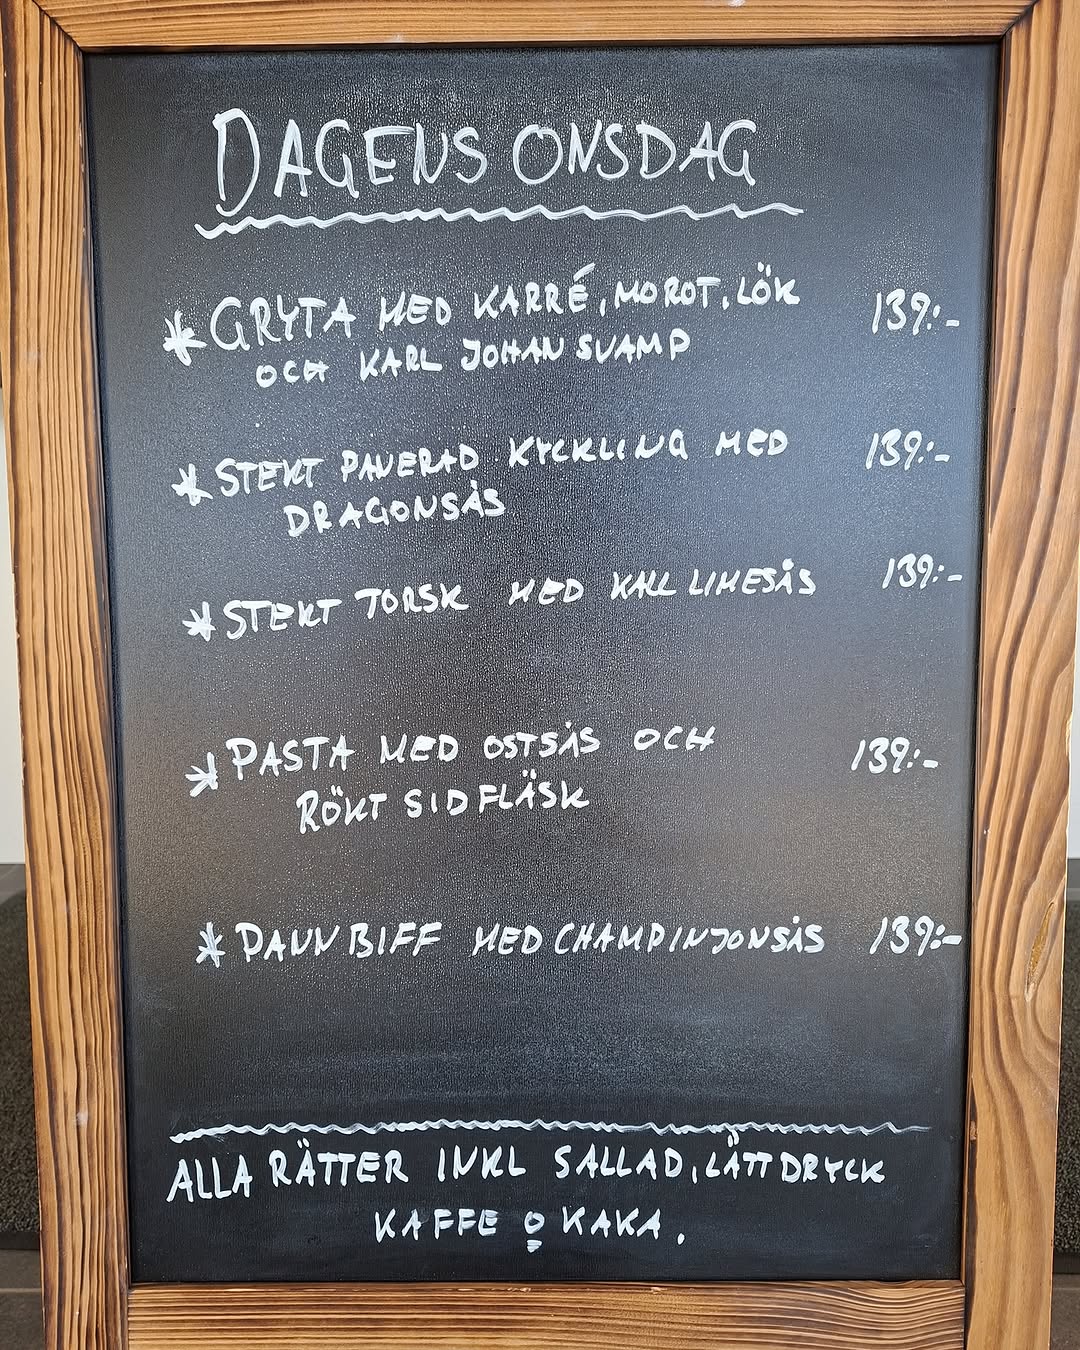 DAGENS ONSDAG
* GRYTA MED KARRÉ, MOROT, LÖK 139:-
OCH KARL JOHAN SVAMP
* STEKT PANERAD KYCKLING MED 139:-
DRAGONSÅS
* STEKT TORSK MED KALL LIMESÅS 139:-
* PASTA MED OSTSÅS OCH 139:-
RÖKT SIDFLÄSK
* PANNBIFF MED CHAMPINJONSÅS 139:-
ALLA RÄTTER INKL SALLAD, LÄTTDRYCK
KAFFE o KAKA.